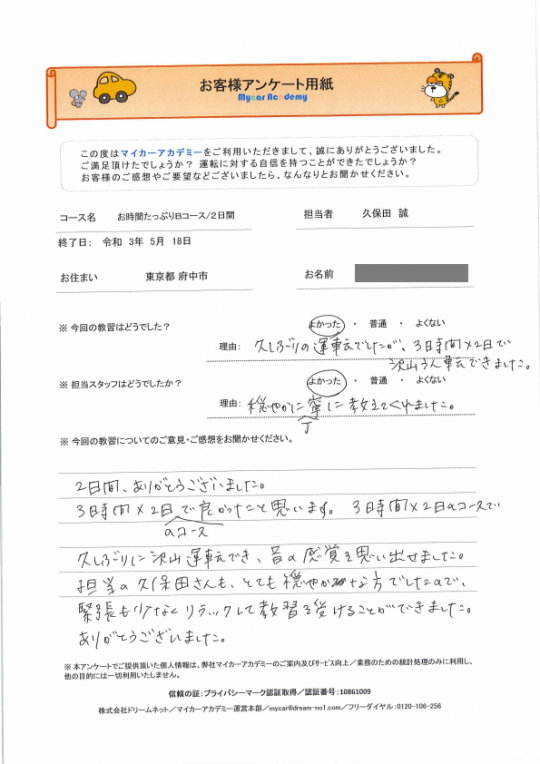 お客様アンケート用紙
Mycar Academy
この度はマイカーアカデミーをご利用いただきまして、誠にありがとうございました。
ご満足頂けたでしょうか？ 運転に対する自信を持つことができたでしょうか？
お客様のご感想やご要望などございましたら、なんなりとお聞かせください。
コース名 お時間たっぷりBコース/2日間 担当者 久保田 誠
終了日： 令和 3年 5月 18日
お住まい 東京都 府中市 お名前
※ 今回の教習はどうでした？ よかった ・ 普通 ・ よくない
理由： 久しぶりの運転でしたが、3日時間×2日で
沢山運転できました。
※ 担当スタッフはどうでしたか？ よかった ・ 普通 ・ よくない
理由： 穏やかに寧に教えてくれました。
丁
※ 今回の教習についてのご意見・ご感想をお聞かせください。
2日間、ありがとうございました。
3日時間×2日で良かったこと思います。 3日時間×2日のコースで
のコース
久しぶりに沢山運転でき、昔の感覚を思い出せました。
担当の久保田さんも、とても穏やかな方でしたので、
緊張も少なくリラックして教習を受けることができました。
ありがとうございました。
※ 本アンケートでご提供頂いた個人情報は、弊社マイカーアカデミーのご案内及びサービス向上／業務のための統計処理のみに利用し、
他の目的には一切利用いたしません。
信頼の証：プライバシーマーク認証取得／認証番号：10861009
株式会社ドリームネット／マイカーアカデミー運営本部／mycar@dream-no1.com／フリーダイヤル：0120-106-256